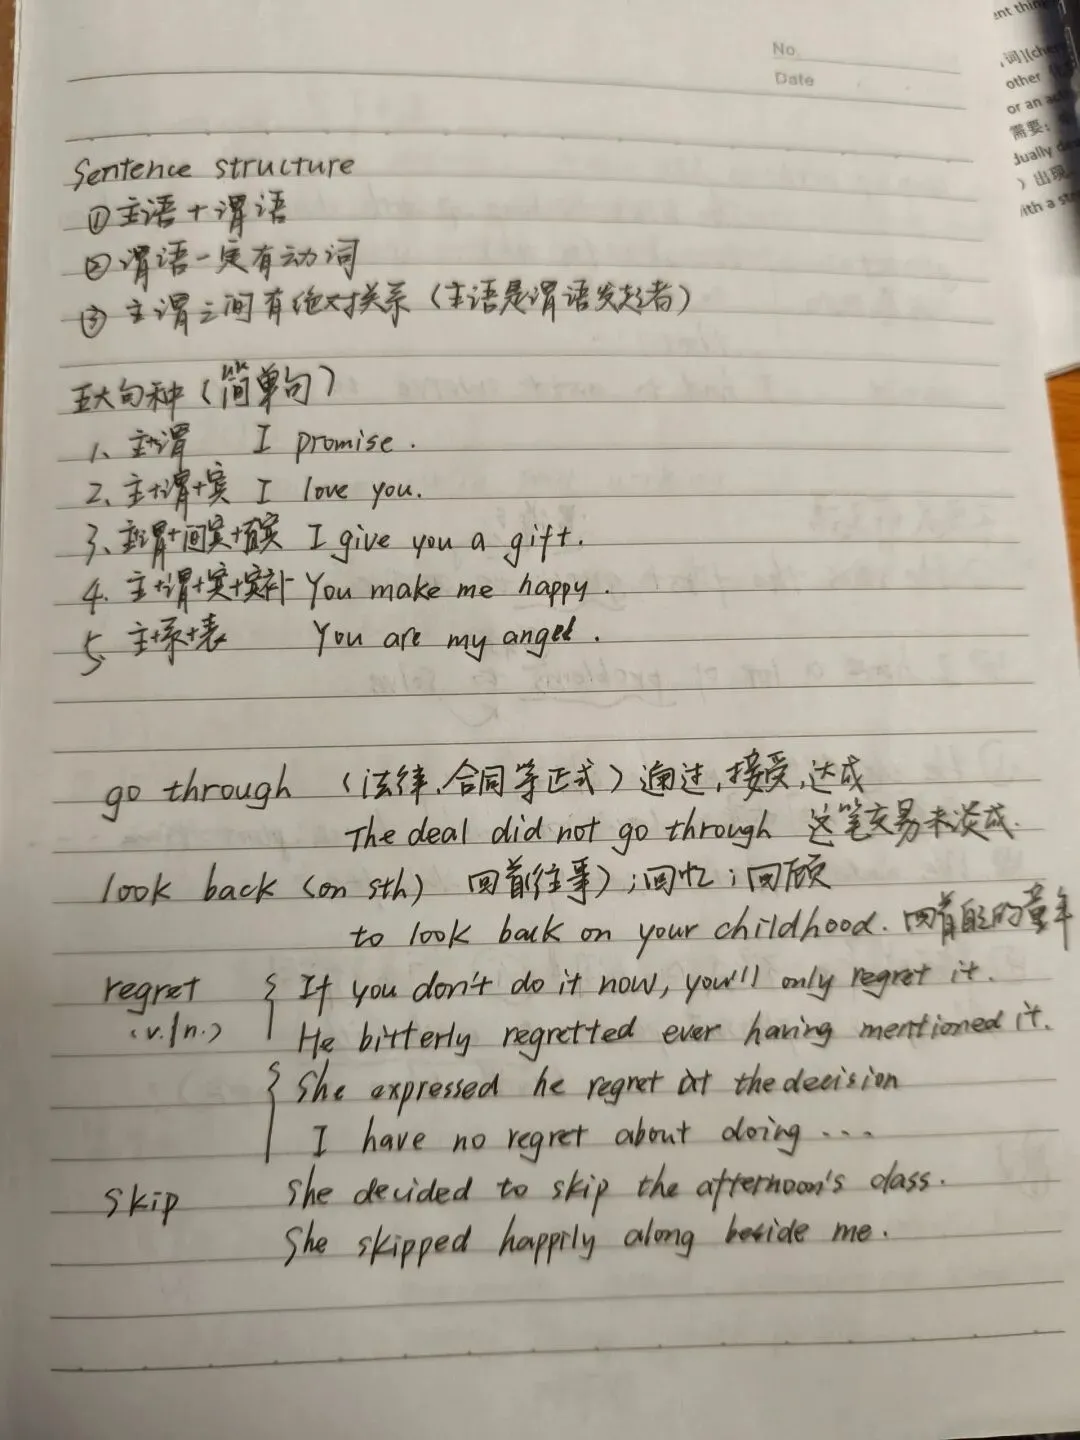 No
Date
ent thin
词](che
other
or an a
需要：
dually de
）出现
with a st
Sentence structure
①主语＋谓语
②谓语一定有动词
③主谓之间有绝对关系（主语是谓语发起者）
五大句种（简单句）
1、主+谓 I promise.
2、主+谓+宾 I love you.
3、主+谓+间宾+直宾 I give you a gift.
4. 主+谓+宾+宾补 You make me happy.
5、主+系+表 You are my angel.
go through （法律、合同等正式）通过，接受，达成
The deal did not go through 这笔交易未谈成.
look back (on sth) 回首(往事)；回忆；回顾
to look back on your childhood. 回首自己的童年
regret { If you don't do it now, you'll only regret it.
(v./n.) He bitterly regretted ever having mentioned it.
{ She expressed he regret at the decision
I have no regret about doing ...
skip She decided to skip the afternoon's class.
She skipped happily along beside me.